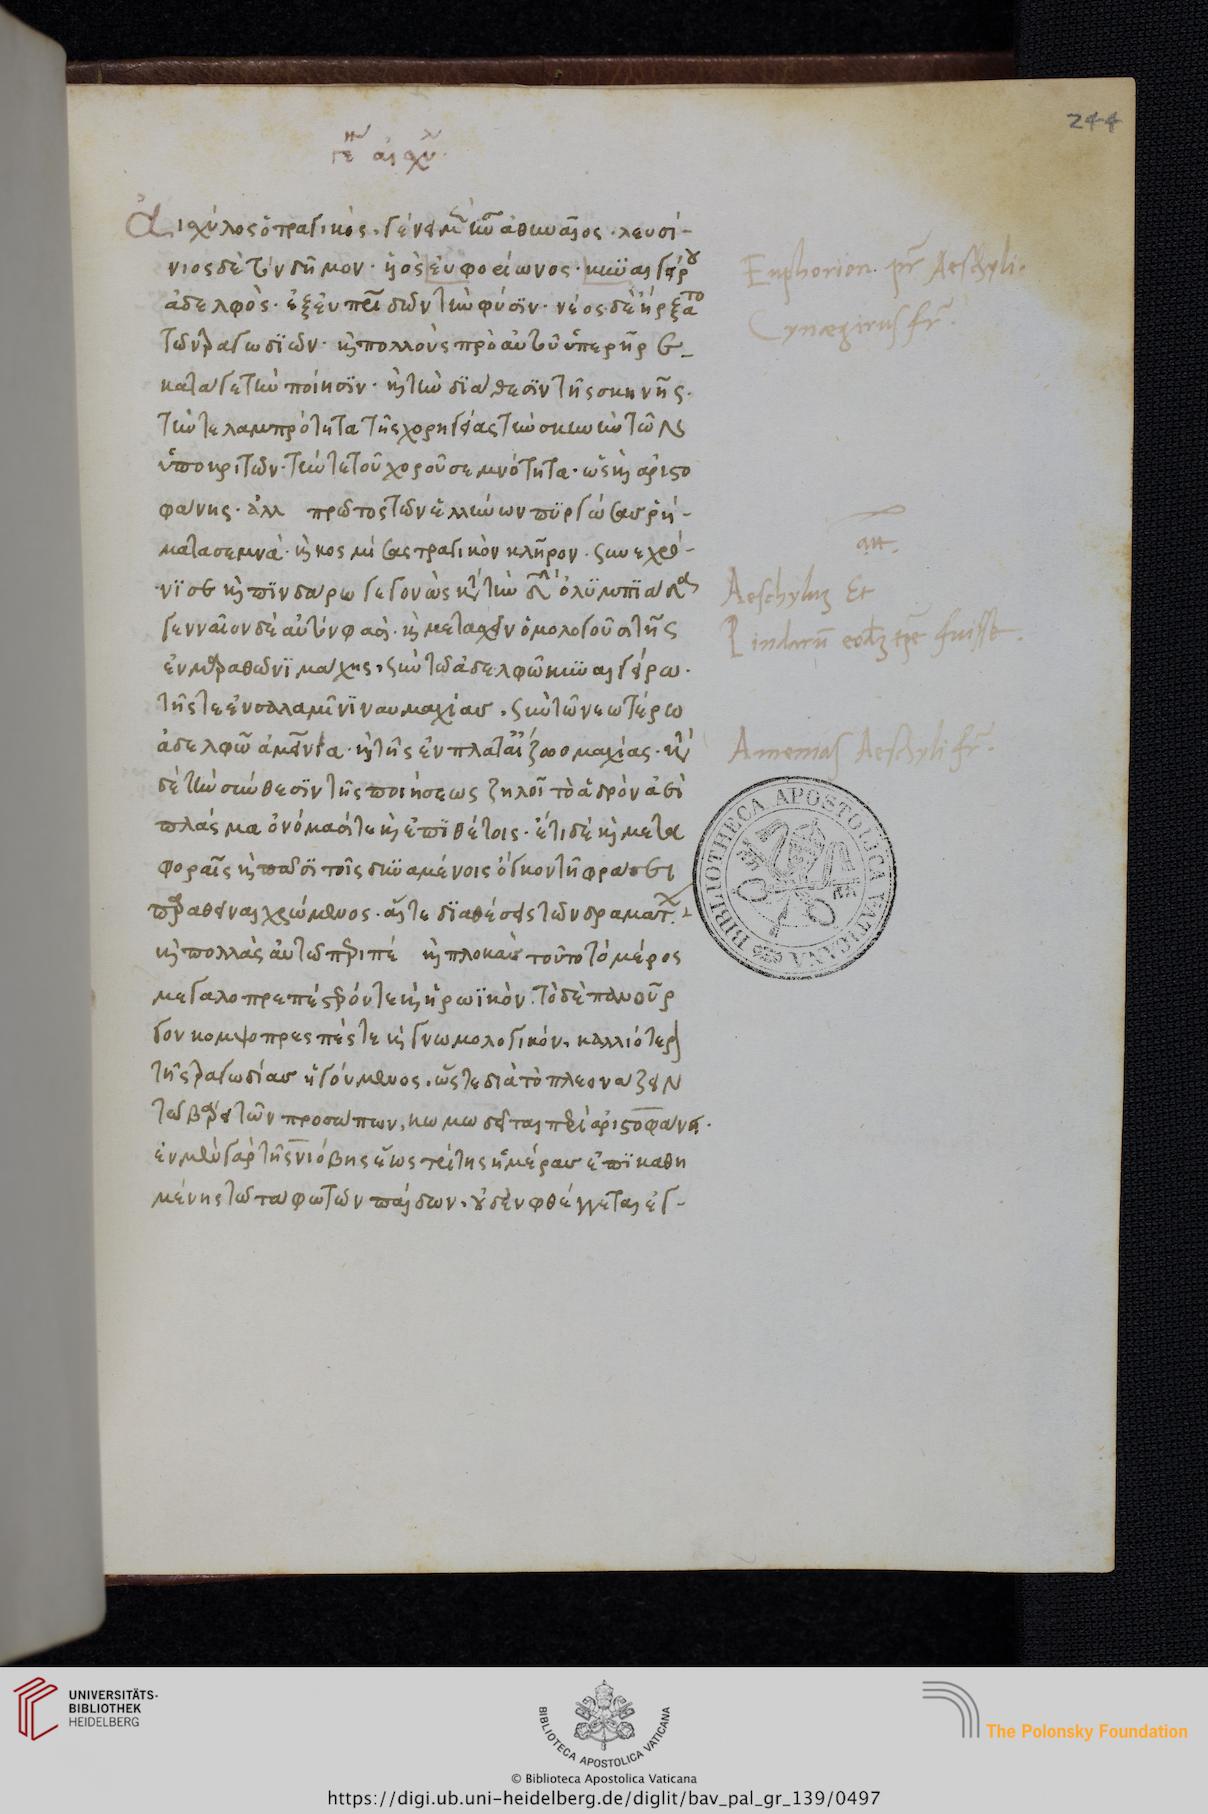 244
γέν αἰσχύ
Αἰσχύλος ὁ τραγικὸς, γένει μὲν ἦν ἀθηναῖος, λευσί-
νιος δὲ τὸν δῆμον· υἱὸς εὐφορίωνος· κυναιγείρου
ἀδελφὸς· ἐξ εὐπατριδῶν τὴν φύσιν· νέος δὲ ἤρξατο
τῶν τραγωδιῶν· καὶ πολλοὺς πρὸ αὐτοῦ ὑπερῆρε
κατά γε τὴν ποίησιν· καὶ τὴν διάθεσιν τῆς σκηνῆς·
τήν τε λαμπρότητα τῆς χορηγίας τὴν σκευὴν τῶν
ὑποκριτῶν· τήν τε τοῦ χοροῦ σεμνότητα· ὡς καὶ ἀριστο
φάνης· ἀλλ πρῶτος τῶν ἑλλήνων πυργώσας ῥή-
ματα σεμνά· καὶ κοσμήσας τραγικὸν κλῆρον· συνεχρό-
νισε καὶ πινδάρω γεγονὼς κατὰ τὴν ὀλυμπιάδα
γενναῖον δὲ αὐτόν φασι· καὶ μετασχεῖν ὁμολογοῦσι τῆς
ἐν μαραθῶνι μάχης, σὺν τῶ ἀδελφῶ κυναιγείρω·
τῆς τε ἐν σαλαμῖνι ναυμαχίας, σὺν τῶ νεωτέρω
ἀδελφῶ ἀμεινία· καὶ τῆς ἐν πλαταιαῖς πεζομαχίας· κατὰ
δὲ τὴν σύνθεσιν τῆς ποιήσεως ζηλοῖ τὸ ἁδρὸν ἀεὶ
πλάσμα ὀνόμασί τε καὶ ἐπιθέτοις· ἔτι δὲ καὶ μετα
φοραῖς καὶ πᾶσι τοῖς δυναμένοις ὄγκον τῆ φράσει
περιθεῖναι χρώμενος· αἵ τε διαθέσεις τῶν δραμάτων
καὶ πολλὰς αὐτῶ περιπε καὶ πλοκὰς τοῦτο τὸ μέρος
μεγαλοπρεπές τε καὶ ἡρωϊκὸν. τὸ δὲ πανοῦργον
κομψοπρεπές τε καὶ γνωμολογικόν, ἀλλότριον
τῆς τραγωδίας ἡγούμενος, ὥστε διὰ τὸ πλεονάζειν
τῶ βάρει τῶν προσώπων, κωμωδεῖται παρὰ ἀριστοφάνει.
ἐν μὲν γὰρ τῆς νιόβης ἕως τρίτης ἡμέρας ἐπικαθη
μένης τῶ τάφω τῶν παίδων, οὐδὲν φθέγγεται ἐγ-
Euphorion pr Aeschyli.
Cynægirus fr.
an.
Aeschylus Et
Pindarū fuisse.
Amenias Aeschyli fr.
BIBLIOTHECA APOSTOLICA VATICANA
UNIVERSITÄTS-
BIBLIOTHEK
HEIDELBERG
BIBLIOTECA APOSTOLICA VATICANA
The Polonsky Foundation
© Biblioteca Apostolica Vaticana
https://digi.ub.uni-heidelberg.de/diglit/bav_pal_gr_139/0497